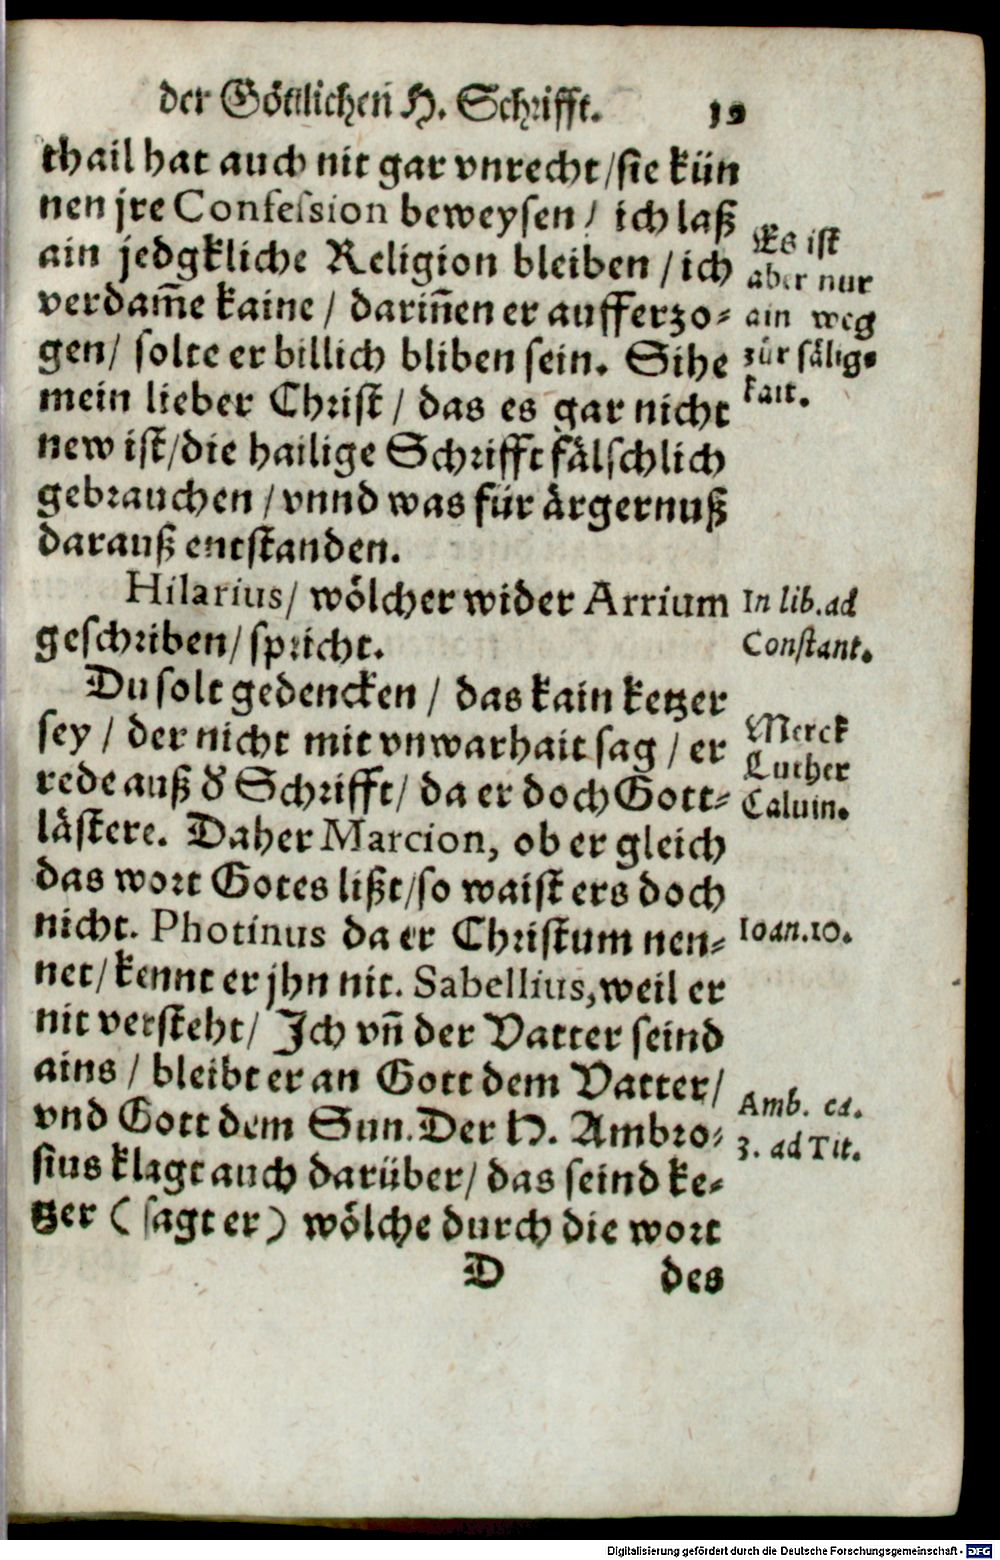 der Göttlichen H. Schrifft. 19
thail hat auch nit gar vnrecht/sie kün
nen jre Confession beweysen/ ich laß
ain jedgkliche Religion bleiben/ich
verdam̃e kaine/ darin̄en er aufferzo⸗
gen/ solte er billich bliben sein. Sihe
mein lieber Christ/ das es gar nicht
new ist/die hailige Schrifft fälschlich
gebrauchen/vnnd was für ärgernuß
darauß entstanden.
Es ist
aber nur
ain weg
zůr sälig⸗
kait.
Hilarius/ wölcher wider Arrium
geschriben/spricht.
In lib. ad
Constant.
Du solt gedencken/ das kain ketzer
sey/ der nicht mit vnwarhait sag/ er
rede auß d̕ Schrifft/ da er doch Gott⸗
lästere. Daher Marcion, ob er gleich
das wort Gotes lißt/so waist ers doch
nicht. Photinus da er Christum nen⸗
net/kennt er jhn nit. Sabellius, weil er
nit versteht/ Ich vn̄ der Vatter seind
ains/ bleibt er an Gott dem Vatter/
vnd Gott dem Sun. Der H. Ambro⸗
sius klagt auch darüber/das seind ke⸗
tzer (sagt er) wölche durch die wort
Merck
Luther
Caluin.
Ioan.10.
Amb. ca.
3. ad Tit.
D des
Digitalisierung gefördert durch die Deutsche Forschungsgemeinschaft - DFG